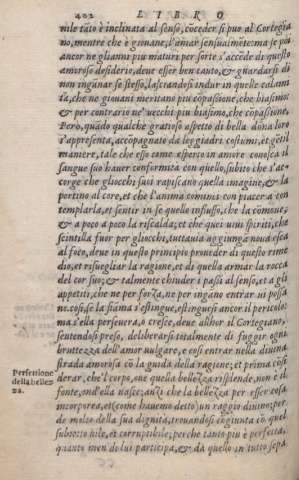 402 LIBRO
nile tãto è inclinata al senso, cõceder si puo al Cortegia
no, mentre che è giouane, l'amar sensualmẽte: ma se poi
ancor ne gli anni piu maturi per sorte s'accẽde di questo
amoroso desiderio, deue esser ben cauto, & guardarsi di
non ingãnar se stesso, lasciandosi indur in quelle calami
tà, che ne giouani meritano piu cõpassione, che biasimo:
& per contrario ne' uecchi piu biasimo, che cõpassione.
Però, quãdo qualche gratioso aspetto di bella dõna lor
s'appresenta, accõpagnato da leggiadri costumi, et gẽtil
maniere, tale che esso come esperto in amore conosca il
sangue suo hauer conformita con quello, subito che s'ac
corge che gliocchi suoi rapiscano quella imagine, & la
portino al core, et che l'anima comincı con piacer a con
templarla, et sentir in se quello influsso, che la cõmoue,
& a poco a poco la riscalda; et che quei uiui spiriti, che
scintillã fuor per gliocchi, tuttauia aggiungã noua esca
al foco, deue in questo principio proueder di questo rime
dio, et risuegliar la ragione, et di quella armar la rocca
del cor suo; & talmente chiuder i passi al senso, et a gli
appetiti, che ne per forza, ne per ingano entrar ui possa
ne. cosi, se la fiãma s'estingue, estinguesi ancor il pericolo:
ma s'ella perseuera, o cresce, deue allhor il Cortegiano,
sentendosi preso, deliberarsi totalmente di fuggir ogni
bruttezza dell'amor uulgare, e cosi entrar nella diuina
strada amorosa cõ la guida della ragione; et prima cõsi
derar, che l'corpo, oue quella bellezza risplende, non è il
fonte, ond'ella nasce; anzi che la bellezza per esser cosa
incorporea, et (come hauemo detto) un raggio diuino; per
de molto della sua dignità, trouandosi cõgiunta cõ quel
subietto uile, et corruttibile; perche tanto piu è perfetta,
quanto men di lui participa, & da quello in tutto sepa
Perfettione
della bellez
za.